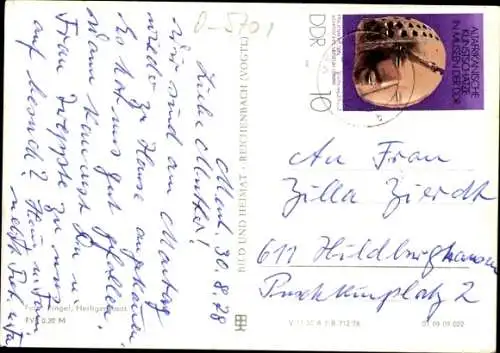 D-5701
Meut., 30.8.78
Liebe Mutter!
Wir sind am Montag
wieder zu Hause angekommen.
Es hat uns gut gefallen.
Wann kommst Du u.
Frau zu uns
auf Besuch?
BILD UND HEIMAT · REICHENBACH (VOGTL)
Heiligenstadt
EVP 0,20 M
V 11 50 A 1 B 712/78
01 09 09 022
DDR
10
ALTAFRIKANISCHE
KUNSTSCHÄTZE
IN MUSEEN DER DDR
An Frau
Zilla Zierdt
611 Hildburghausen
Puschkinplatz 2